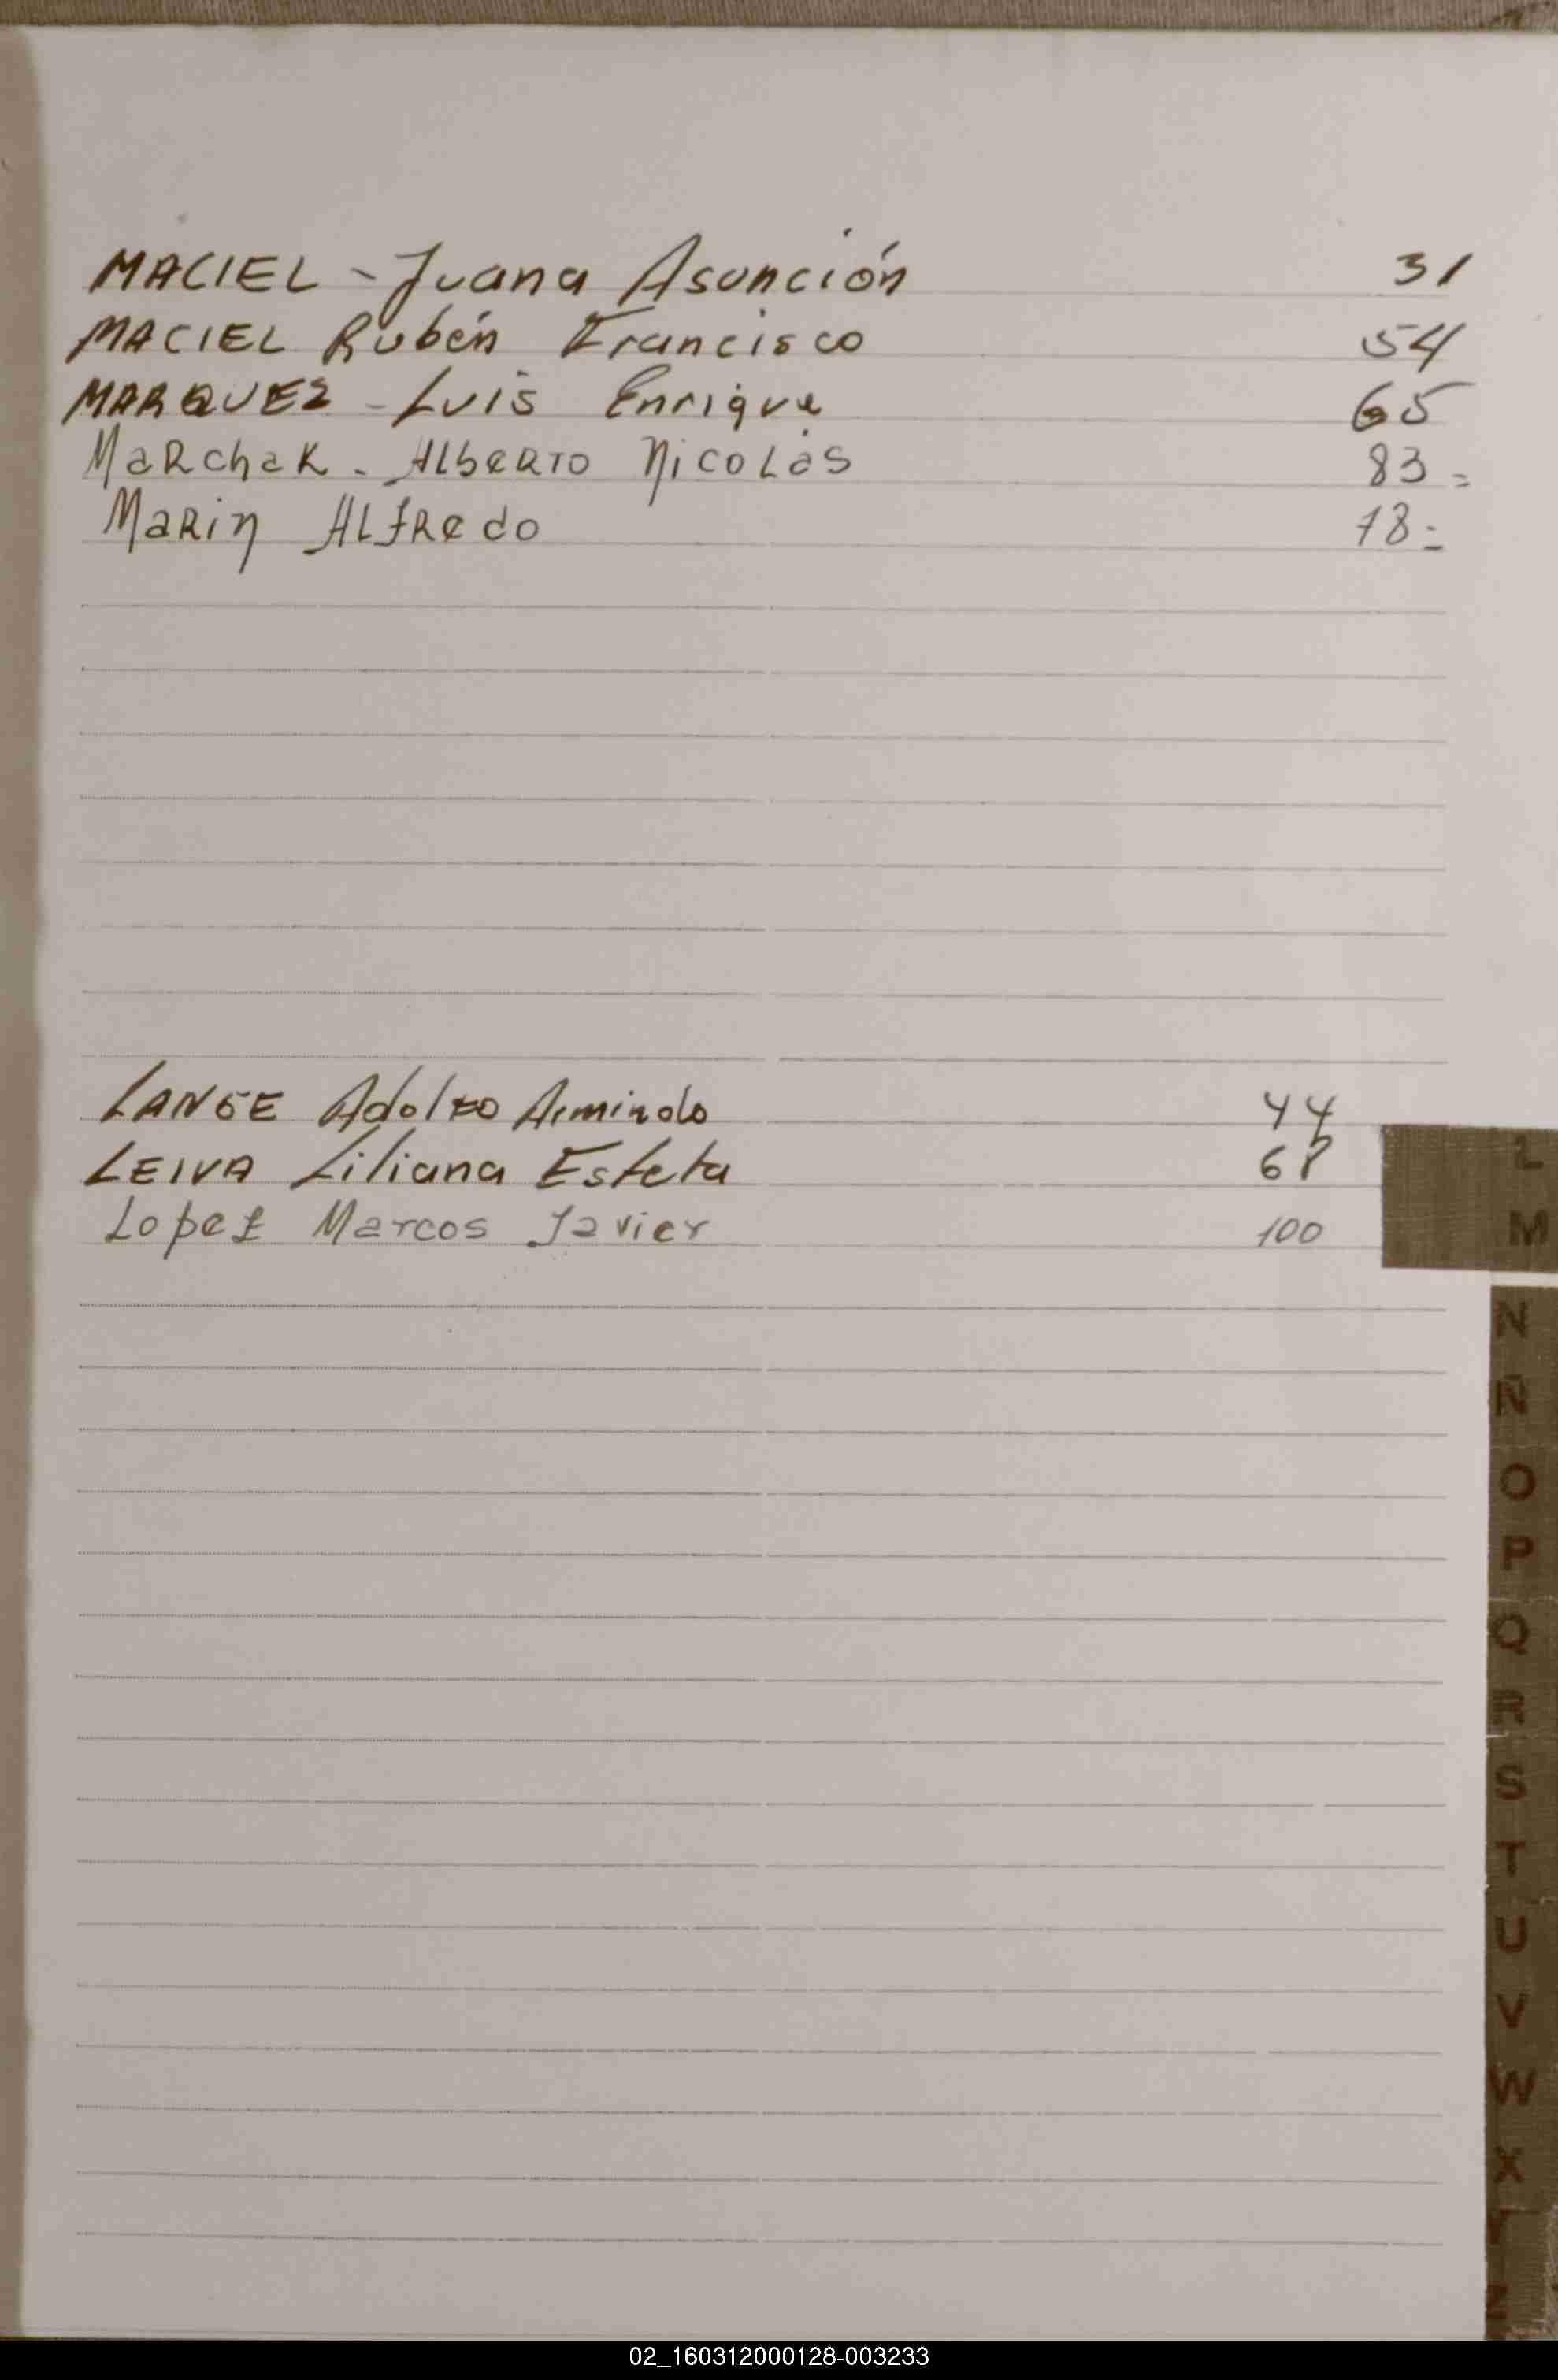 MACIEL - Juana Asunción 31
MACIEL Rubén Francisco 54
MARQUEZ - Luis Enrique 65
Marchak - Alberto Nicolás 83 =
Marin Alfredo 18 =
LANGE Adolfo Armindo 44
LEIVA Liliana Estela 68
Lopez Marcos Javier 100
L
M
N
Ñ
O
P
Q
R
S
T
U
V
W
X
Y
Z
02_160312000128-003233